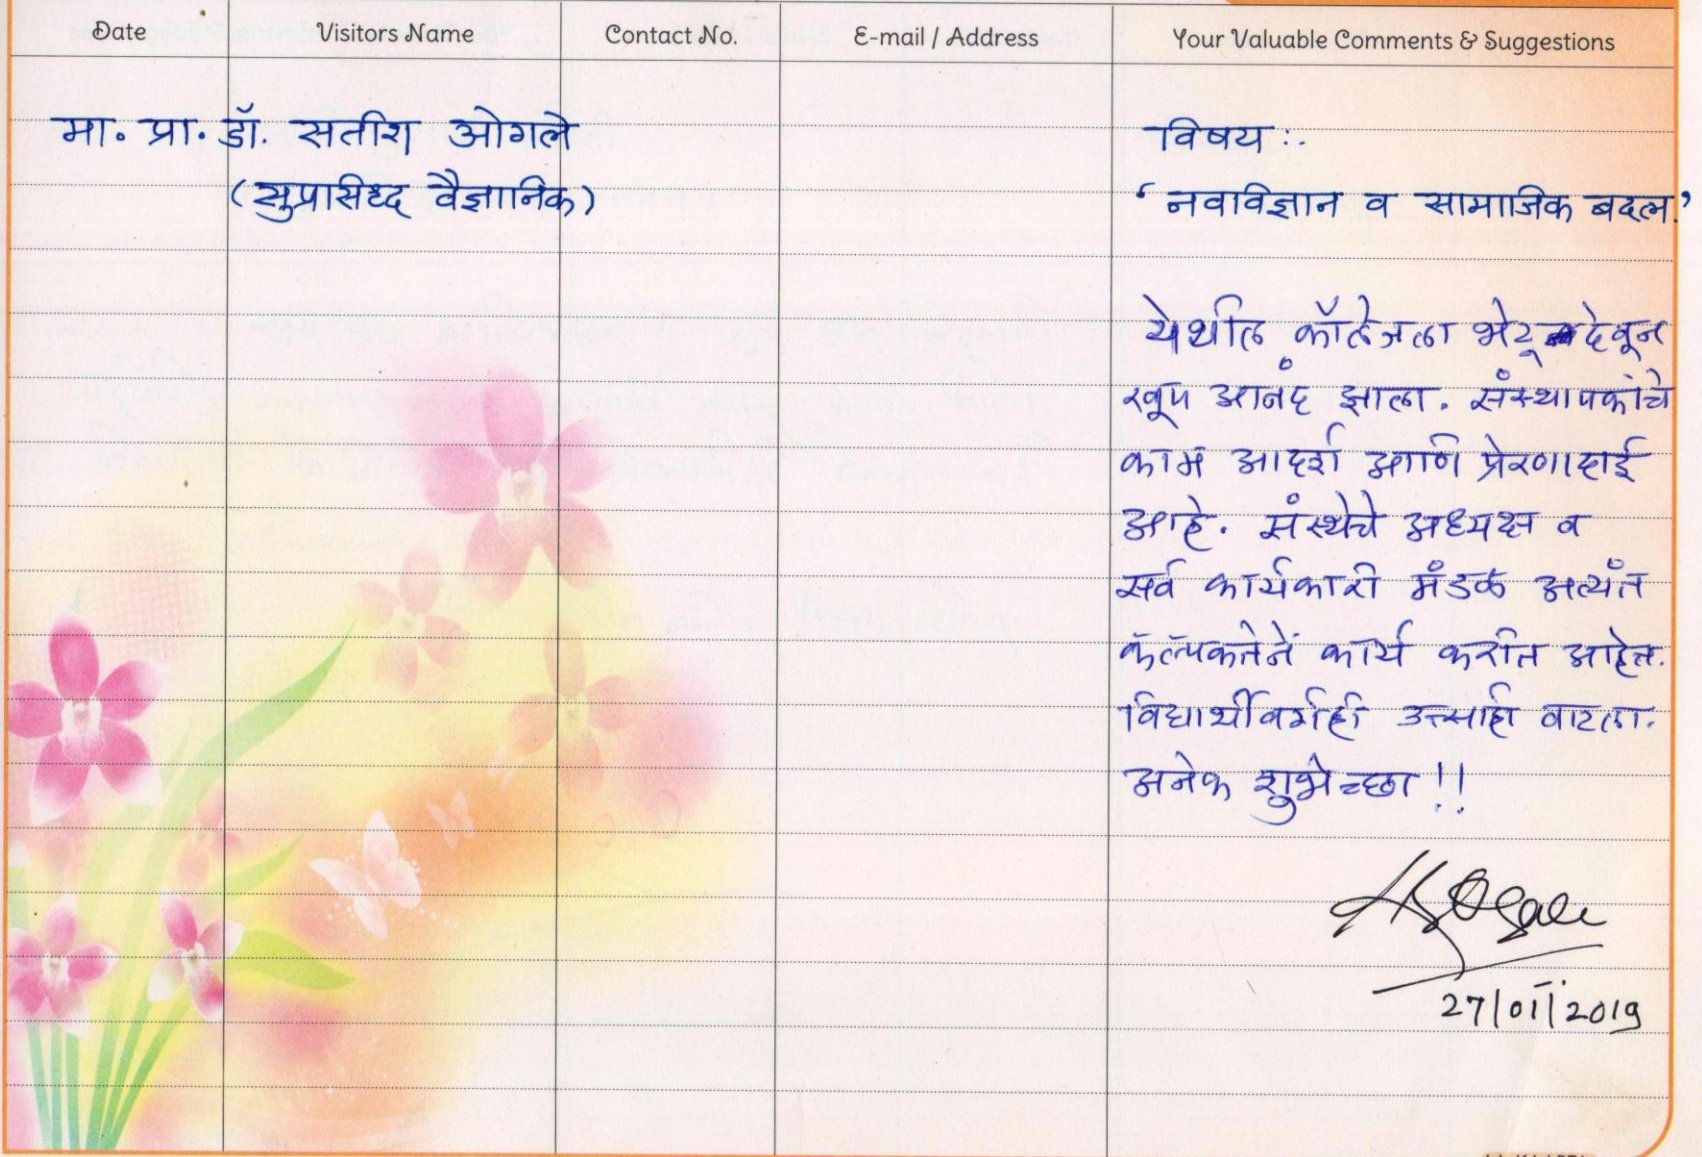 Date Visitors Name Contact No. E-mail / Address Your Valuable Comments & Suggestions
मा. प्रा. डॉ. सतीश ओगले
(सुप्रसिध्द वैज्ञानिक)
विषय :.
‘नवविज्ञान व सामाजिक बदल.’
येथील कॉलेजला भेट देवून
खूप आनंद झाला. संस्थापकांचे
काम आदर्श आणि प्रेरणादाई
आहे. संस्थेचे अध्यक्ष व
सर्व कार्यकारी मंडळ अत्यंत
कल्पकतेनें कार्य करीत आहेत.
विद्यार्थीवर्गही उत्साही वाटला.
अनेक शुभेच्छा !!
Ogale
27/01/2019